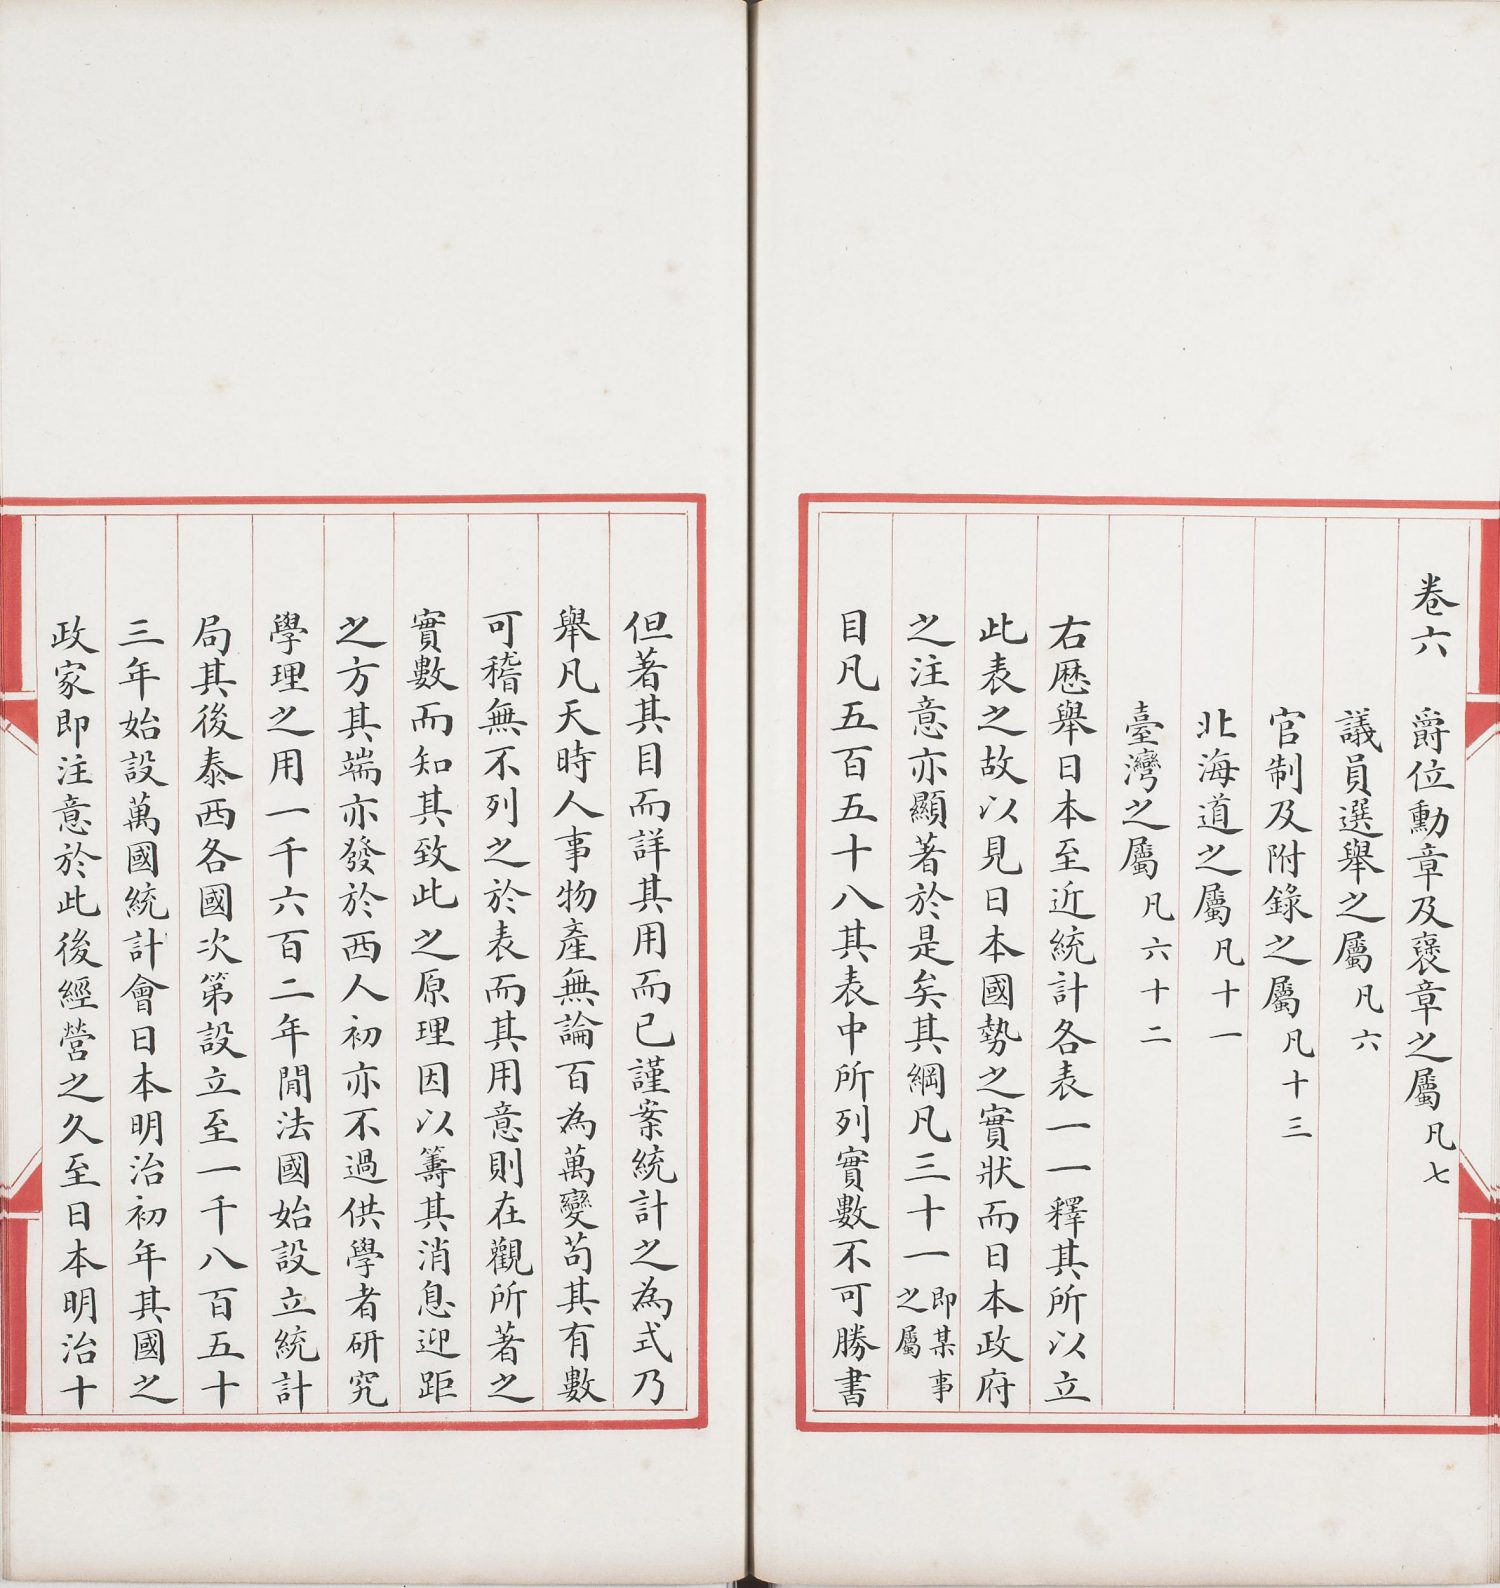 卷六　爵位勳章及襃章之屬凡七
議員選舉之屬凡六
官制及附錄之屬凡十三
北海道之屬凡十一
臺灣之屬凡六十二
右歷舉日本至近統計各表一一釋其所以立
此表之故以見日本國勢之實狀而日本政府
之注意亦顯著於是矣其綱凡三十一即某事之屬
目凡五百五十八其表中所列實數不可勝書
但著其目而詳其用而已謹案統計之為式乃
舉凡天時人事物產無論百為萬變苟其有數
可稽無不列之於表而其用意則在觀所著之
實數而知其致此之原理因以籌其消息迎距
之方其端亦發於西人初亦不過供學者研究
學理之用一千六百二年閒法國始設立統計
局其後泰西各國次第設立至一千八百五十
三年始設萬國統計會日本明治初年其國之
政家即注意於此後經營之久至日本明治十